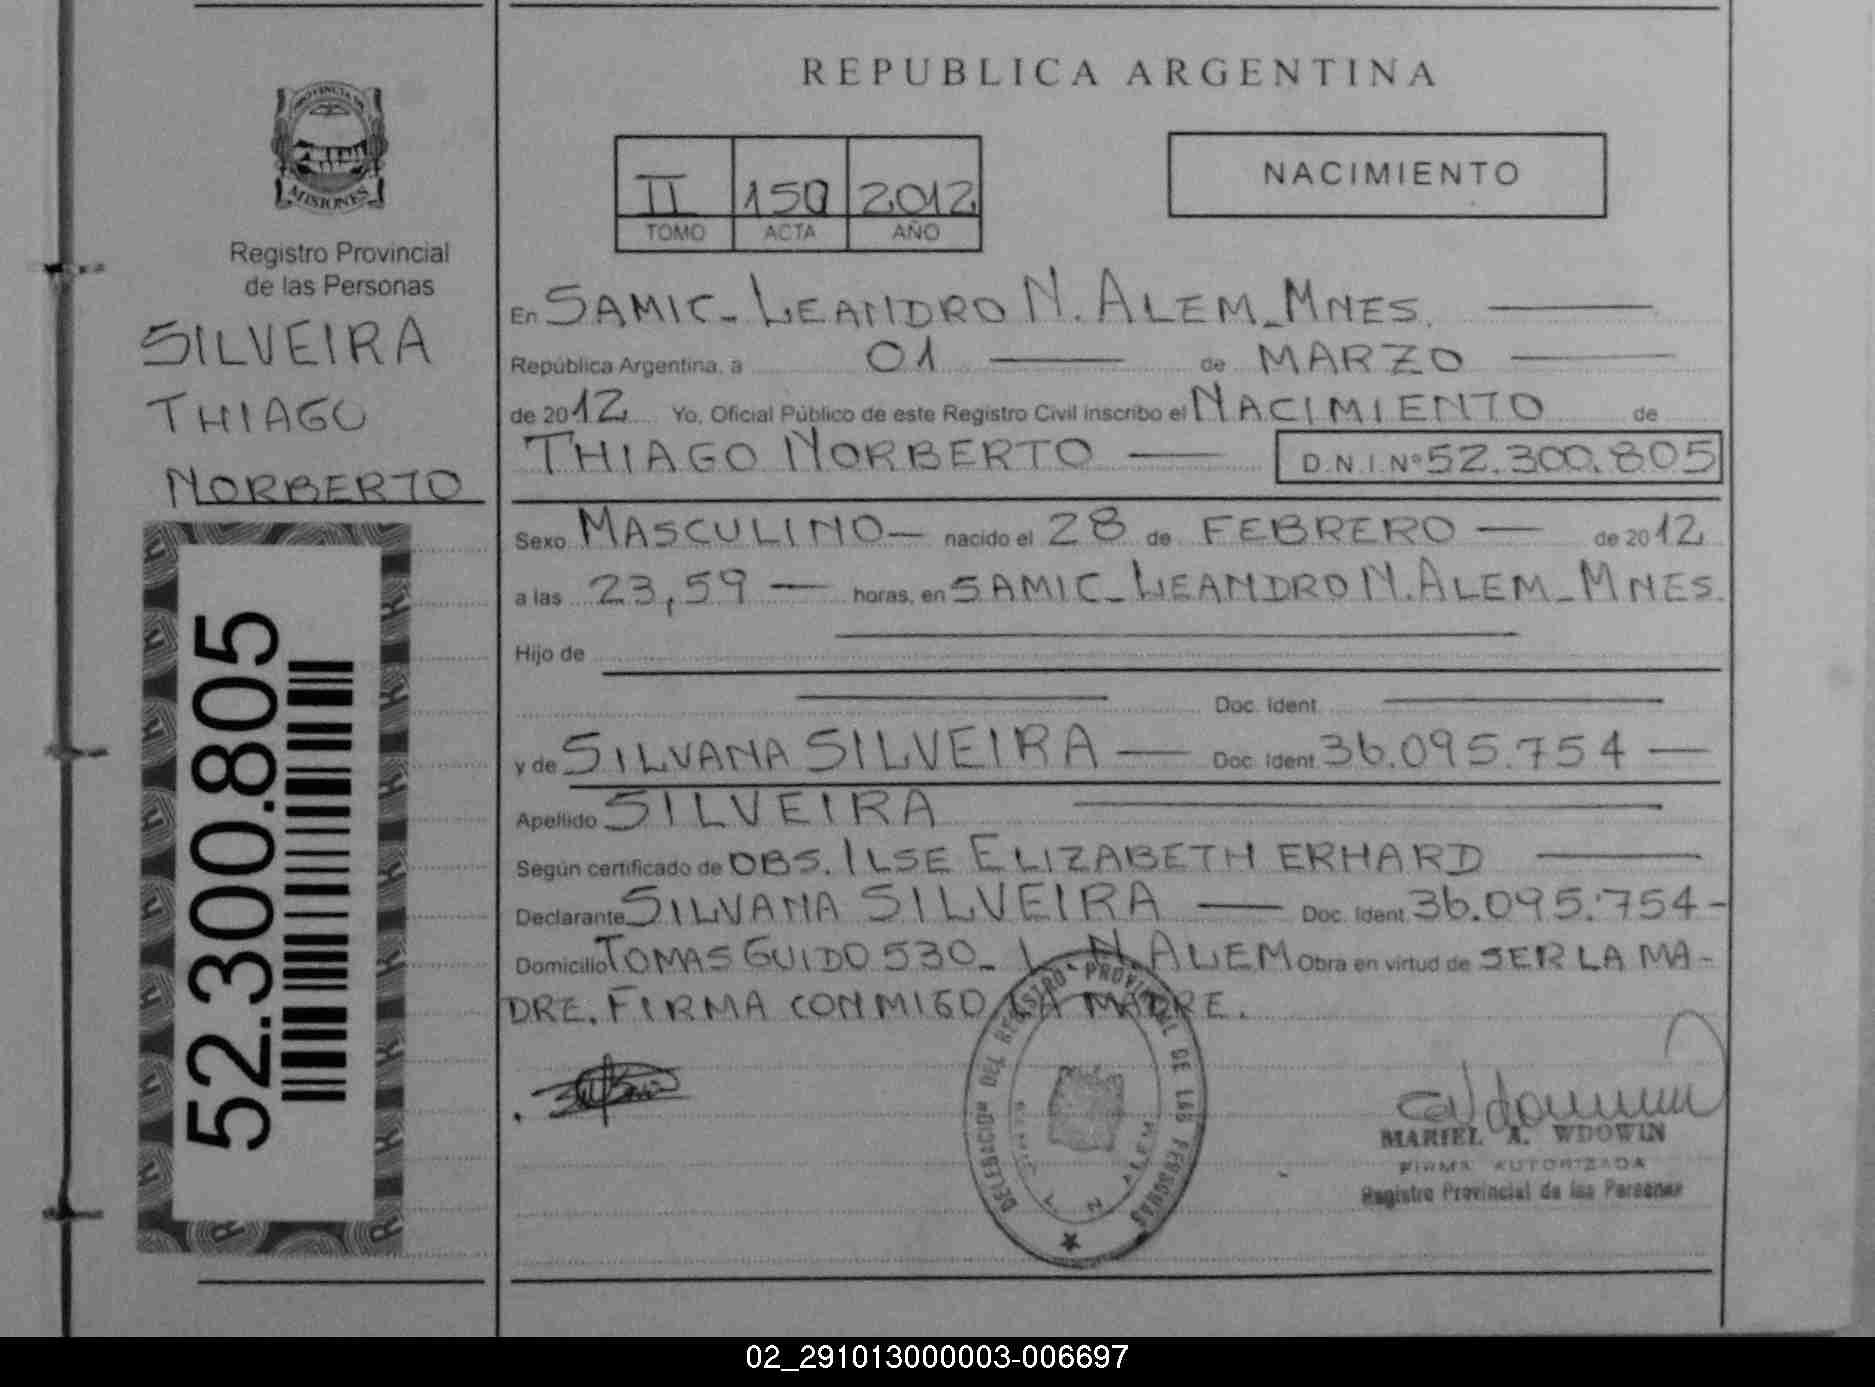 REPUBLICA ARGENTINA
PROVINCIA DE
MISIONES
Registro Provincial
de las Personas
SILVEIRA
THIAGO
NORBERTO
52.300.805
II 150 2012
TOMO ACTA AÑO
NACIMIENTO
En SAMIC_LEANDRO N. ALEM_MNES.
República Argentina, a 01 de MARZO
de 2012 Yo, Oficial Público de este Registro Civil inscribo el NACIMIENTO de
THIAGO NORBERTO D.N.I.Nº 52.300.805
Sexo MASCULINO nacido el 28 de FEBRERO de 2012
a las 23,59 horas, en SAMIC_LEANDRO N. ALEM_MNES.
Hijo de
Doc. Ident.
y de SILVANA SILVEIRA Doc. Ident. 36.095.754
Apellido SILVEIRA
Según certificado de OBS. ILSE ELIZABETH ERHARD
Declarante SILVANA SILVEIRA Doc. Ident. 36.095.754
Domicilio TOMAS GUIDO 530_ L. N. ALEM Obra en virtud de SER LA MA-
DRE. FIRMA CONMIGO LA MADRE.
DELEGACION DEL REGISTRO PROVINCIAL DE LAS PERSONAS
L N ALEM
MARIEL A. WDOWIN
FIRMA AUTORIZADA
Registro Provincial de las Personas
02_291013000003-006697